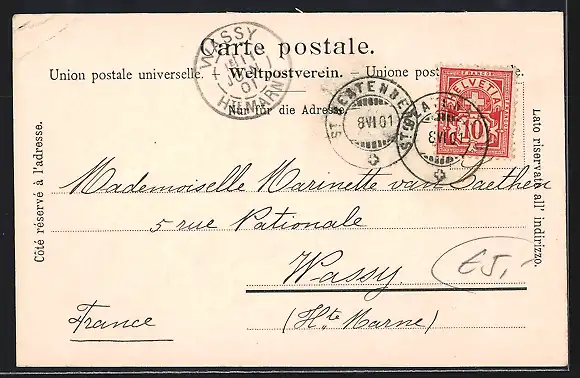 Carte postale.
Union postale universelle. + Weltpostverein. – Unione post
Nur für die Adresse
WASSY
JUIN
01
HTE MARNE
ST. BEATENBERG
8 VI 01
ST. BEA
8 VI 01
FRANCO
HELVETIA
10
Côté réservé à l'adresse.
Lato riservato all' indirizzo.
Mademoiselle Marinette van Saethen
5 rue Nationale
Wassy.
(Hte Marne)
France
€5,-